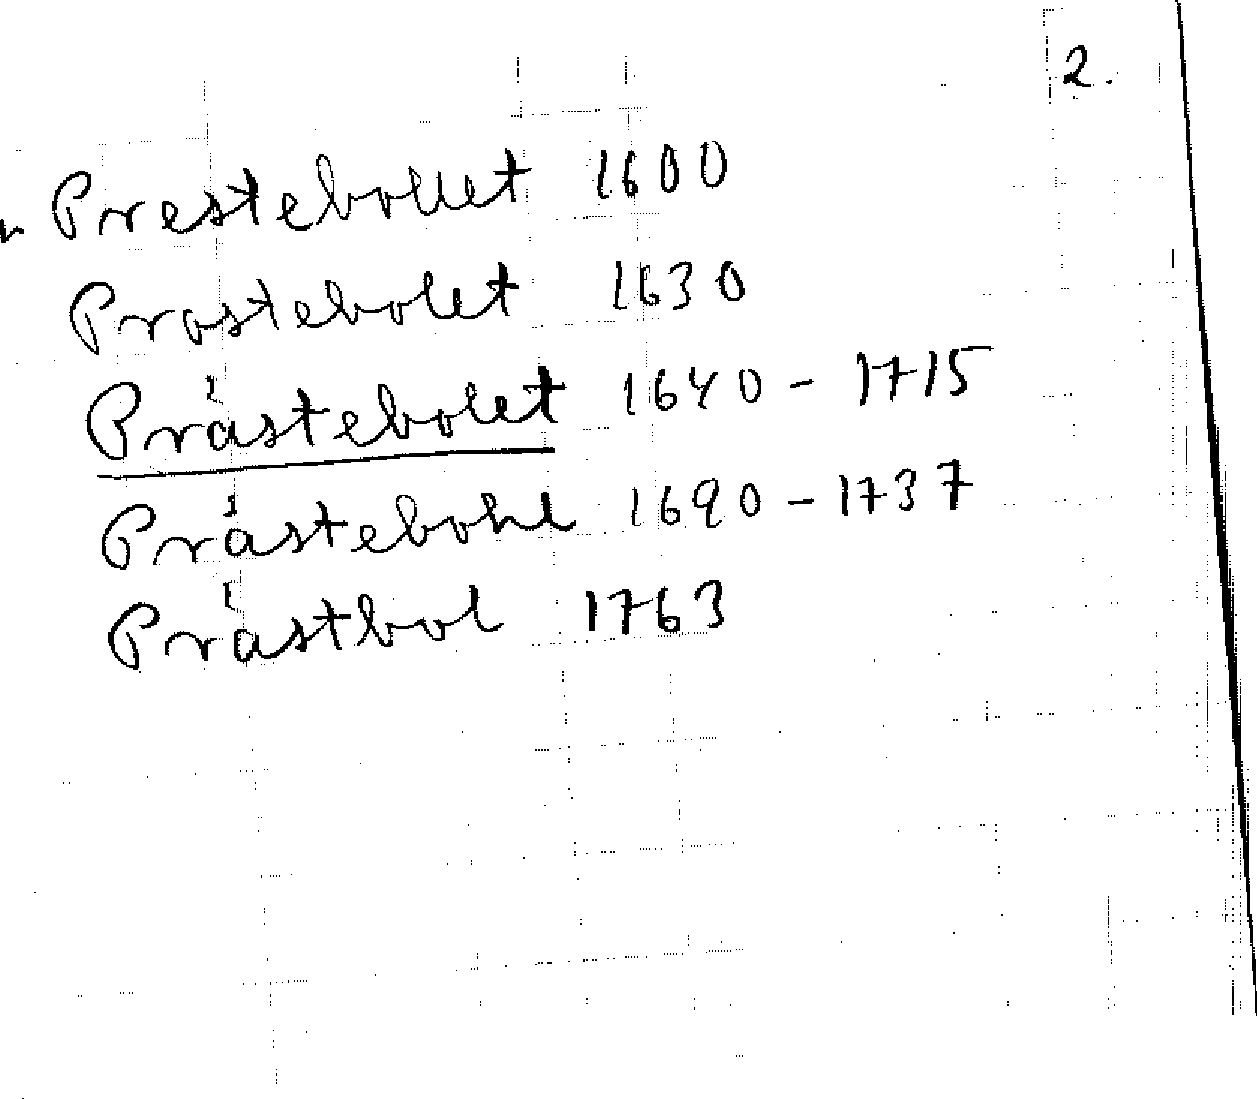 2.
Prestebollet 1600
Prostebolet 1630
Prästebolet 1640 - 1715
Prästebohl 1690 - 1737
Prästbol 1763